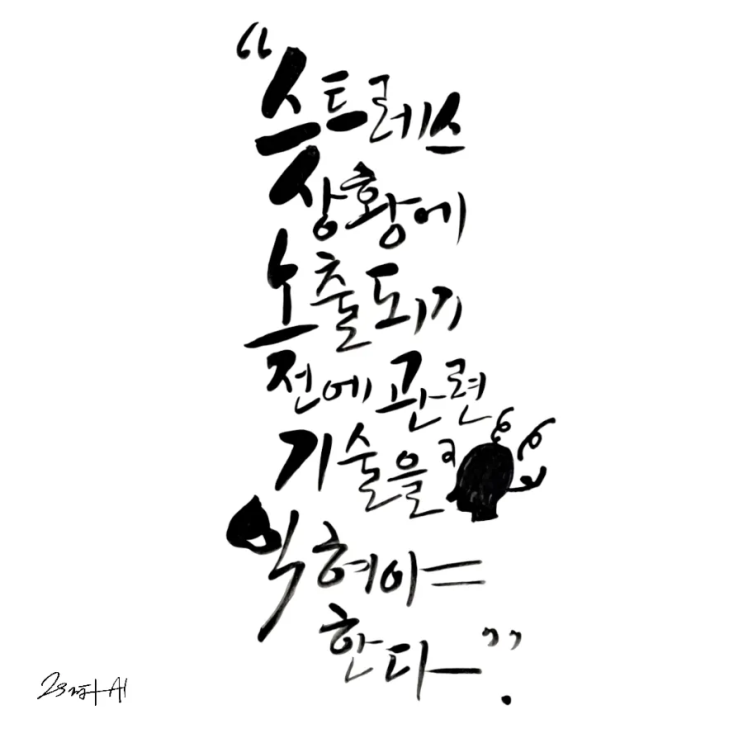 “스트레스
상황에
노출되기
전에 관련
기술을
익혀야
한다”.